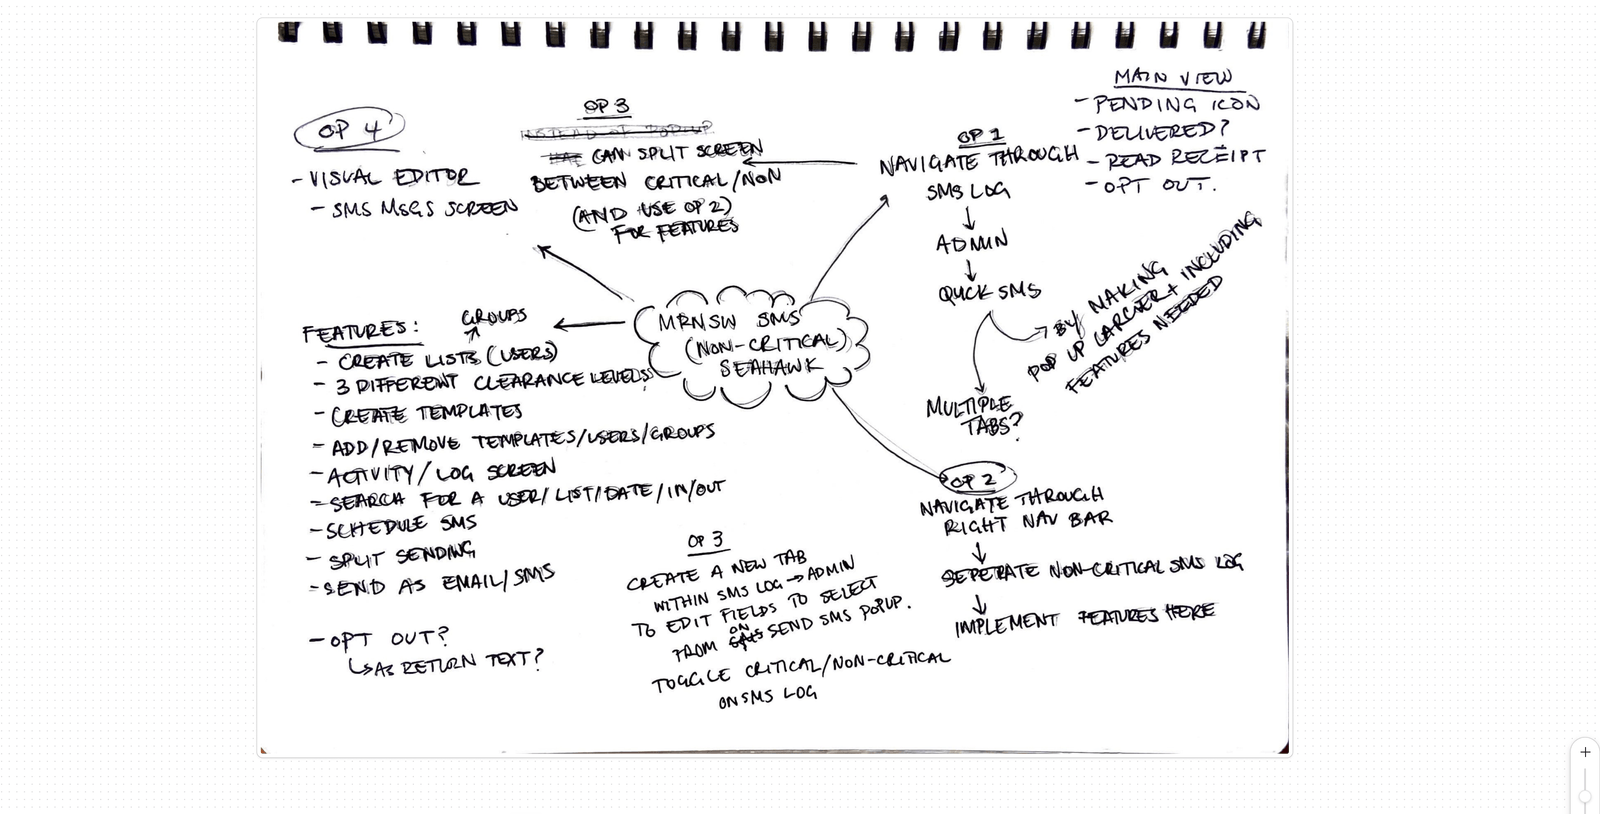 OP 4
- VISUAL EDITOR
- SMS MSGS SCREEN
OP 3
INSTEAD OF POPUP
CAN SPLIT SCREEN
BETWEEN CRITICAL/NON
(AND USE OP 2)
FOR FEATURES
OP 1
NAVIGATE THROUGH
SMS LOG
↓
ADMIN
↓
QUCK SMS
→ BY MAKING
POP UP LARGER + INCLUDING
FEATURES NEEDED
MULTIPLE
TABS?
MAIN VIEW
- PENDING ICON
- DELIVERED?
- READ RECEIPT
- OPT OUT.
MRNSW SMS
(NON-CRITICAL)
SEAHAWK
FEATURES:
GROUPS
- CREATE LISTS (USERS)
- 3 DIFFERENT CLEARANCE LEVELS
- CREATE TEMPLATES
- ADD/REMOVE TEMPLATES/USERS/GROUPS
- ACTIVITY/LOG SCREEN
- SEARCH FOR A USER/LIST/DATE/IN/OUT
- SCHEDULE SMS
- SPLIT SENDING
- SEND AS EMAIL/SMS
- OPT OUT?
↳ AS RETURN TEXT?
OP 3
CREATE A NEW TAB
WITHIN SMS LOG → ADMIN
TO EDIT FIELDS TO SELECT
FROM ON SEND SMS POPUP.
TOGGLE CRITICAL/NON-CRITICAL
ON SMS LOG
OP 2
NAVIGATE THROUGH
RIGHT NAV BAR
↓
SEPERATE NON-CRITICAL SMS LOG
↓
IMPLEMENT FEATURES HERE